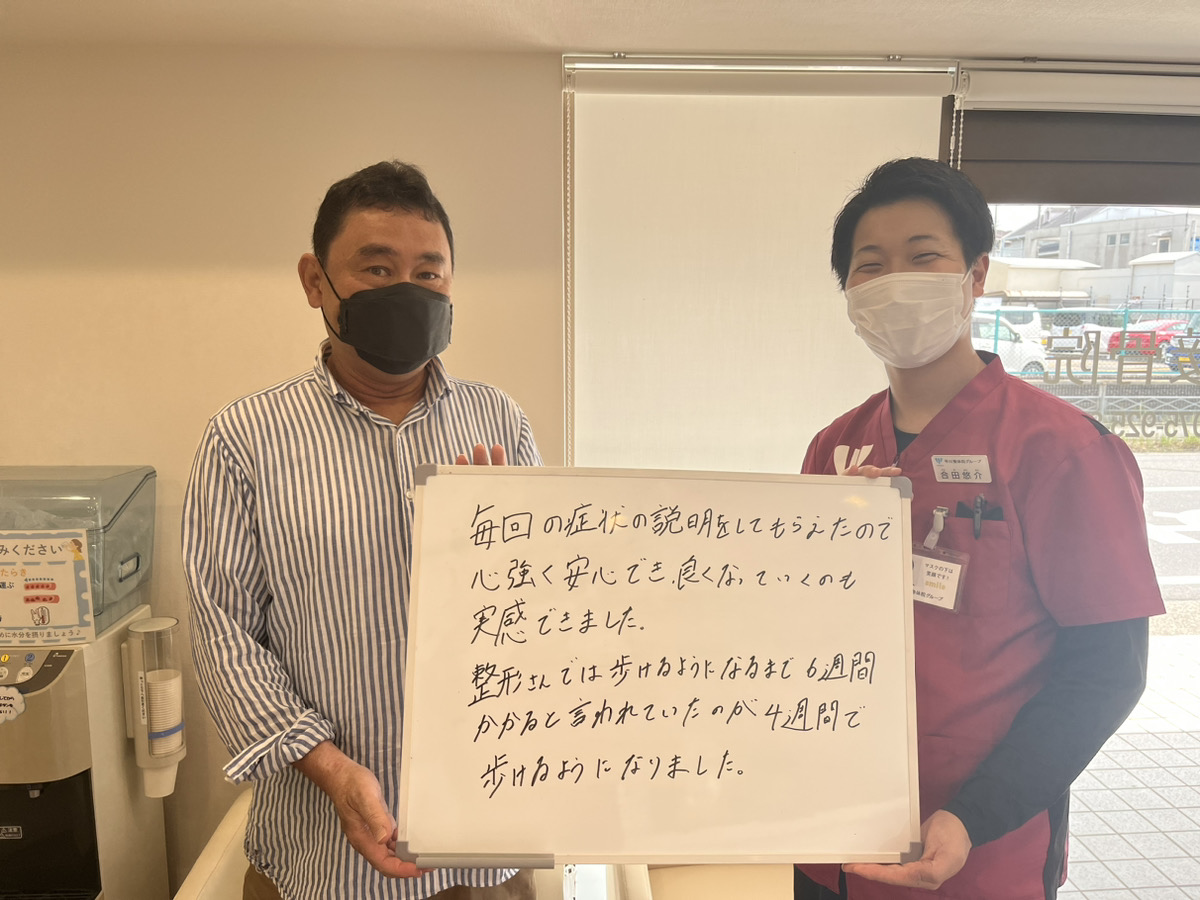 毎回の症状の説明をしてもらえたので
心強く安心でき、良くなっていくのも
実感できました。
整形さんでは歩けるようになるまで6週間
かかると言われていたのが4週間で
歩けるようになりました。
合田悠介
マスクの下は
笑顔です!
smile
みください
たらき
選ぶ
めに水分を摂りましょう♪